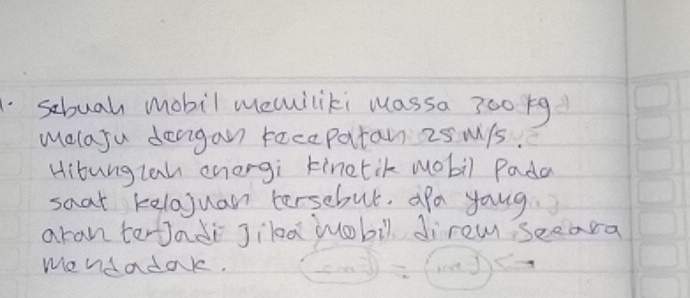 1. Sebuah mobil memiliki massa 300 kg
melaju dengan kecepatan 25 m/s.
Hitunglah energi kinetik mobil pada
saat kelajuan tersebut. apa yang
akan terjadi jika mobil direm secara
mendadak.